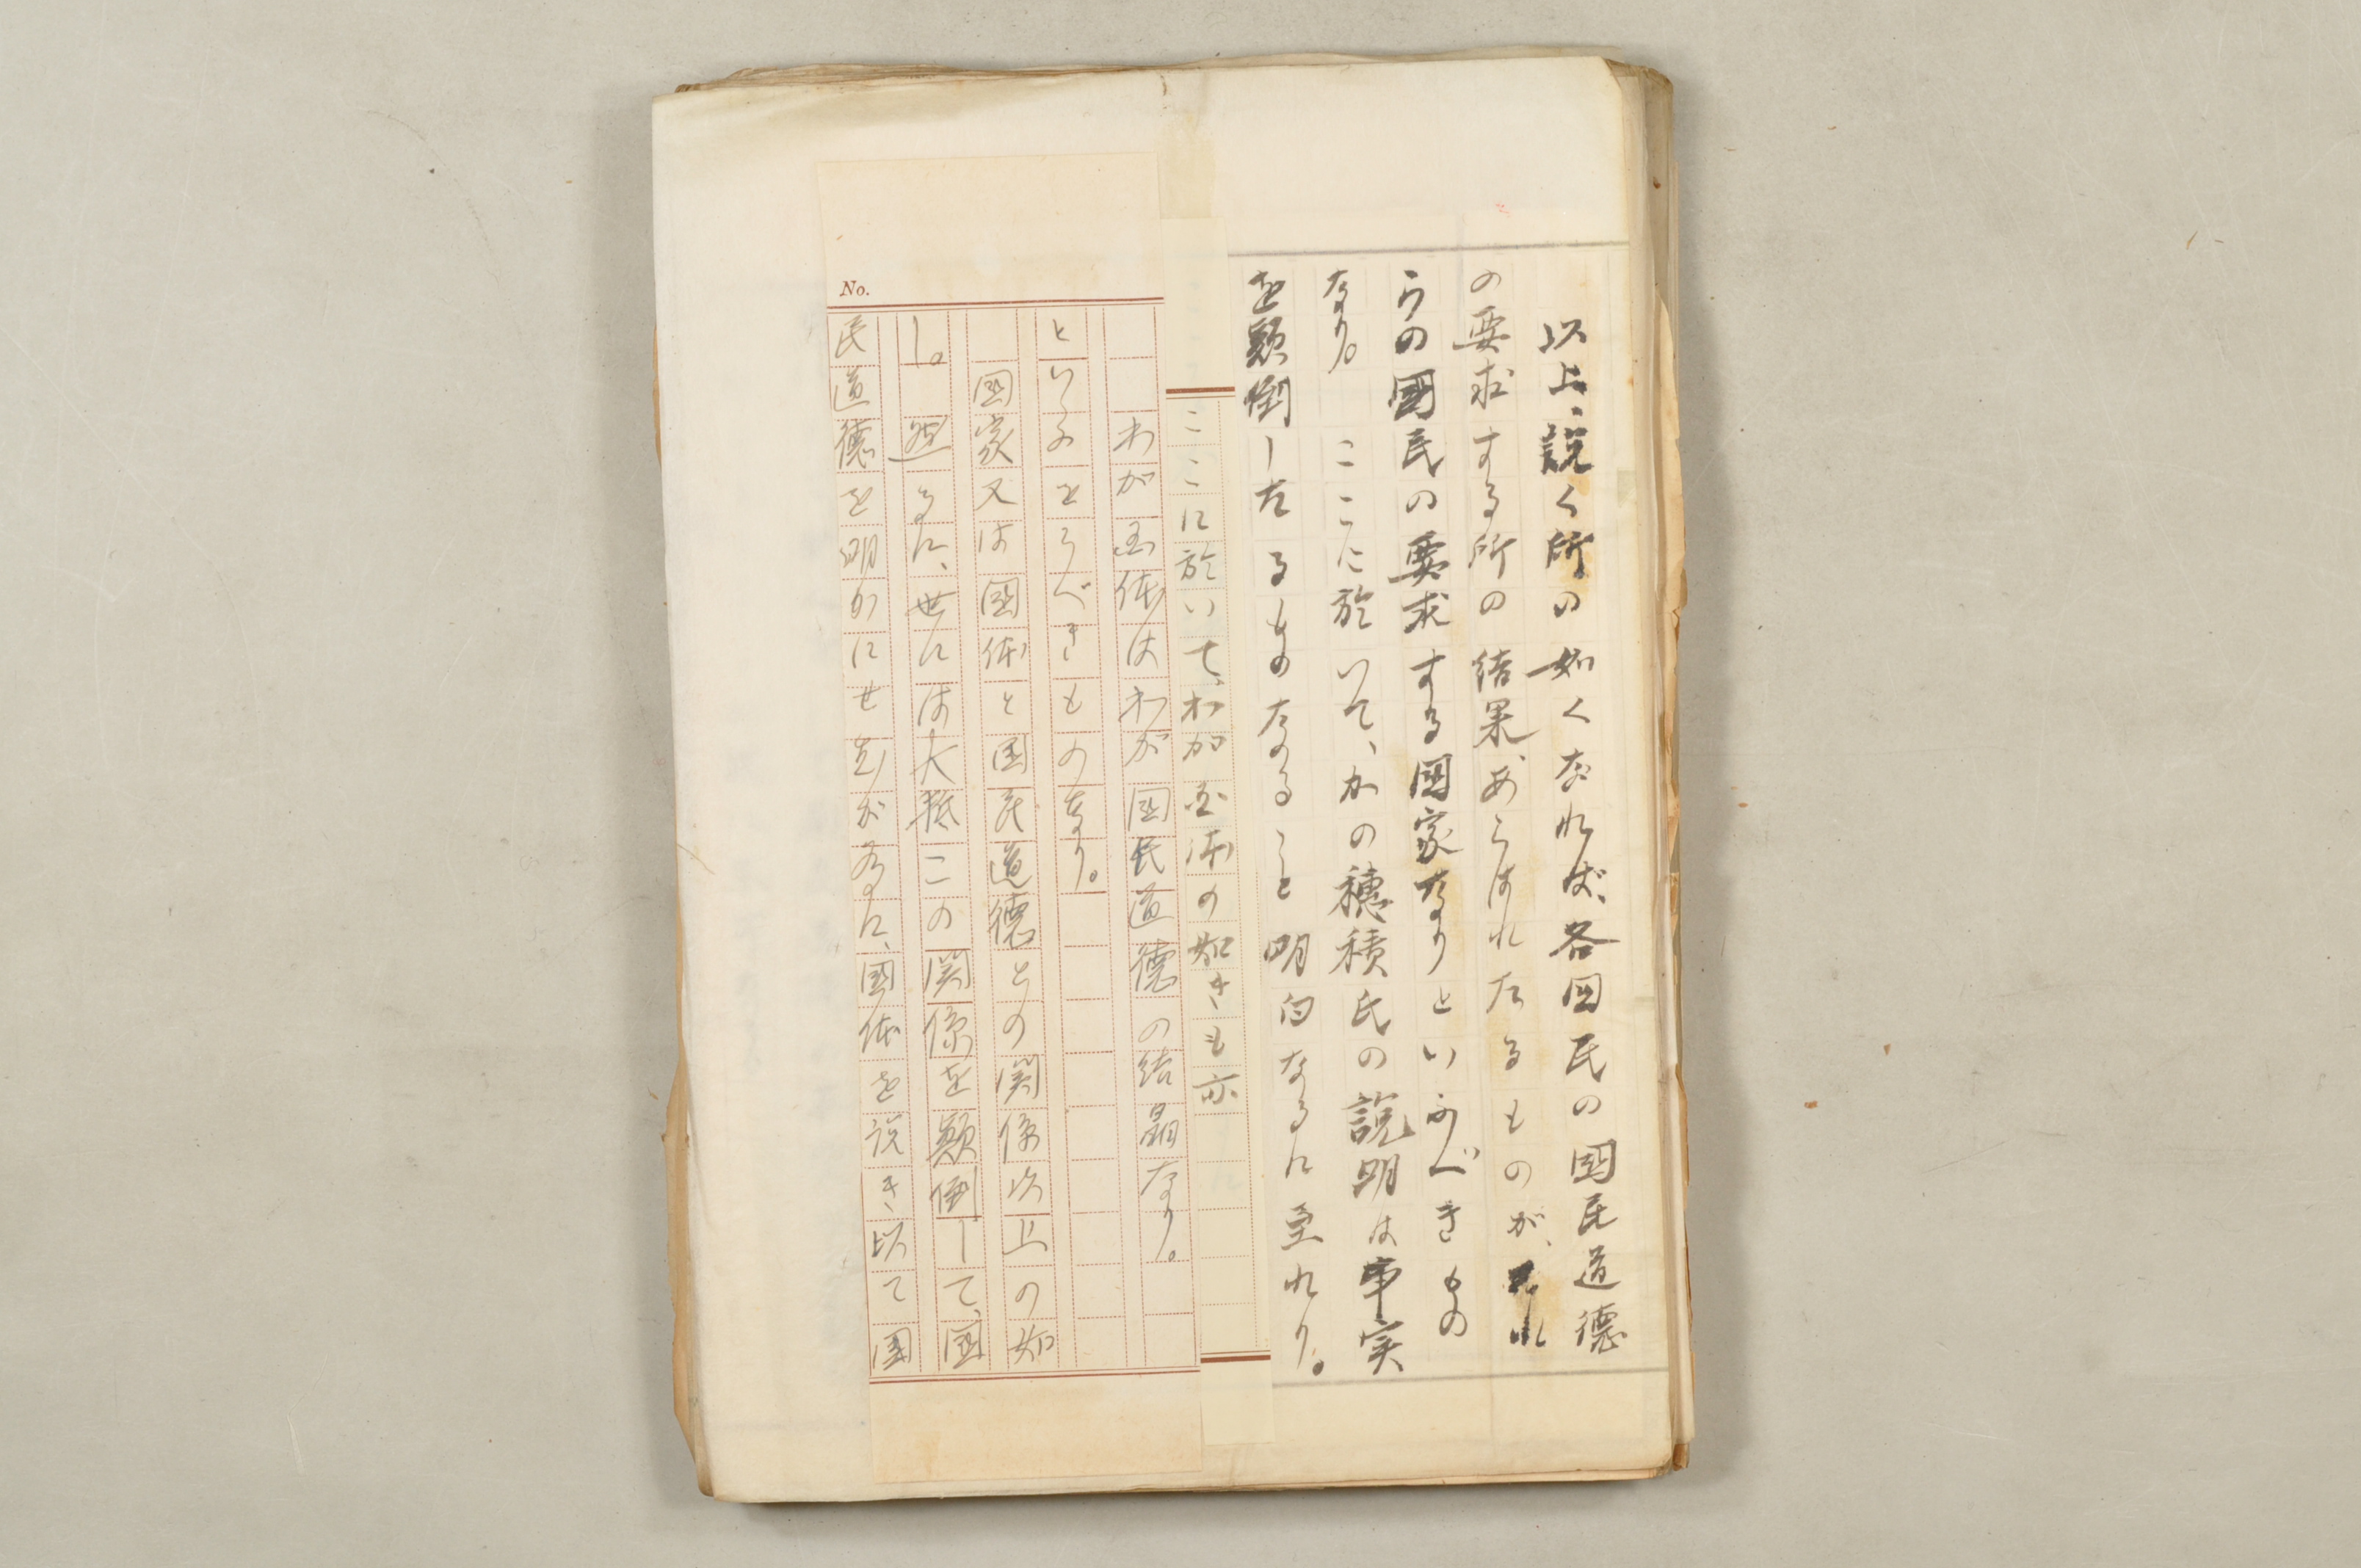 以上、説く所の如くなれば、各国民の國民道德
の要求する所の結果、あらはれたるものが、それ
らの國民の要求する國家なりといふべきもの
なり。ここに於いて、かの穂積氏の説明は事実
を顚倒したるものなること明白なるに至れり。
ここに於いて、わが国体の如きも亦
わが国体はわが國民道德の結晶なり。
といふをうべきものなり。
國家又は國体と国民道德との関係以上の如
し。然るに、世には大抵この関係を顚倒して、國
民道德を明かにせむが為に、國体を説き以て国
No.